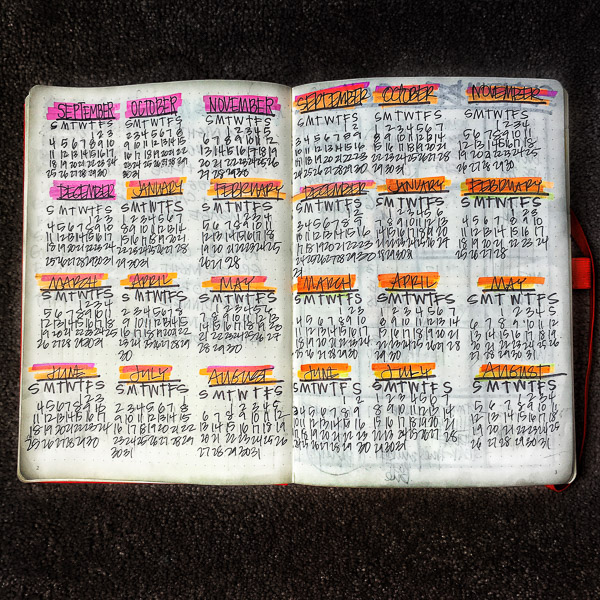 SEPTEMBER
S M T W T F S
1 2 3
4 5 6 7 8 9 10
11 12 13 14 15 16 17
18 19 20 21 22 23 24
25 26 27 28 29 30
OCTOBER
S M T W T F S
2 3 4 5 6 7 8
9 10 11 12 13 14 15
16 17 18 19 20 21 22
23 24 25 26 27 28 29
30 31
NOVEMBER
S M T W T F S
1 2 3 4 5
6 7 8 9 10 11 12
13 14 15 16 17 18 19
20 21 22 23 24 25 26
27 28 29 30
DECEMBER
S M T W T F S
1 2 3
4 5 6 7 8 9 10
11 12 13 14 15 16 17
18 19 20 21 22 23 24
25 26 27 28 29 30 31
JANUARY
S M T W T F S
1 2 3 4 5 6 7
8 9 10 11 12 13 14
15 16 17 18 19 20 21
22 23 24 25 26 27 28
29 30 31
FEBRUARY
S M T W T F S
1 2 3 4
5 6 7 8 9 10 11
12 13 14 15 16 17 18
19 20 21 22 23 24 25
26 27 28
MARCH
S M T W T F S
1 2 3 4
5 6 7 8 9 10 11
12 13 14 15 16 17 18
19 20 21 22 23 24 25
26 27 28 29 30 31
APRIL
S M T W T F S
1
2 3 4 5 6 7 8
9 10 11 12 13 14 15
16 17 18 19 20 21 22
23 24 25 26 27 28 29
30
MAY
S M T W T F S
1 2 3 4 5 6
7 8 9 10 11 12 13
14 15 16 17 18 19 20
21 22 23 24 25 26 27
28 29 30 31
JUNE
S M T W T F S
1 2 3
4 5 6 7 8 9 10
11 12 13 14 15 16 17
18 19 20 21 22 23 24
25 26 27 28 29 30
JULY
S M T W T F S
1
2 3 4 5 6 7 8
9 10 11 12 13 14 15
16 17 18 19 20 21 22
23 24 25 26 27 28 29
30 31
AUGUST
S M T W T F S
1 2 3 4 5
6 7 8 9 10 11 12
13 14 15 16 17 18 19
20 21 22 23 24 25 26
27 28 29 30 31
2
SEPTEMBER
S M T W T F S
1 2
3 4 5 6 7 8 9
10 11 12 13 14 15 16
17 18 19 20 21 22 23
24 25 26 27 28 29 30
OCTOBER
S M T W T F S
1 2 3 4 5 6 7
8 9 10 11 12 13 14
15 16 17 18 19 20 21
22 23 24 25 26 27 28
29 30 31
NOVEMBER
S M T W T F S
1 2 3 4
5 6 7 8 9 10 11
12 13 14 15 16 17 18
19 20 21 22 23 24 25
26 27 28 29 30
DECEMBER
S M T W T F S
1 2
3 4 5 6 7 8 9
10 11 12 13 14 15 16
17 18 19 20 21 22 23
24 25 26 27 28 29 30
31
JANUARY
S M T W T F S
1 2 3 4 5 6
7 8 9 10 11 12 13
14 15 16 17 18 19 20
21 22 23 24 25 26 27
28 29 30 31
FEBRUARY
S M T W T F S
1 2 3
4 5 6 7 8 9 10
11 12 13 14 15 16 17
18 19 20 21 22 23 24
25 26 27 28
MARCH
S M T W T F S
1 2 3
4 5 6 7 8 9 10
11 12 13 14 15 16 17
18 19 20 21 22 23 24
25 26 27 28 29 30 31
APRIL
S M T W T F S
1 2 3 4 5 6 7
8 9 10 11 12 13 14
15 16 17 18 19 20 21
22 23 24 25 26 27 28
29 30
MAY
S M T W T F S
1 2 3 4 5
6 7 8 9 10 11 12
13 14 15 16 17 18 19
20 21 22 23 24 25 26
27 28 29 30 31
JUNE
S M T W T F S
1 2
3 4 5 6 7 8 9
10 11 12 13 14 15 16
17 18 19 20 21 22 23
24 25 26 27 28 29 30
JULY
S M T W T F S
1 2 3 4 5 6 7
8 9 10 11 12 13 14
15 16 17 18 19 20 21
22 23 24 25 26 27 28
29 30 31
AUGUST
S M T W T F S
1 2 3 4
5 6 7 8 9 10 11
12 13 14 15 16 17 18
19 20 21 22 23 24 25
26 27 28 29 30 31
3